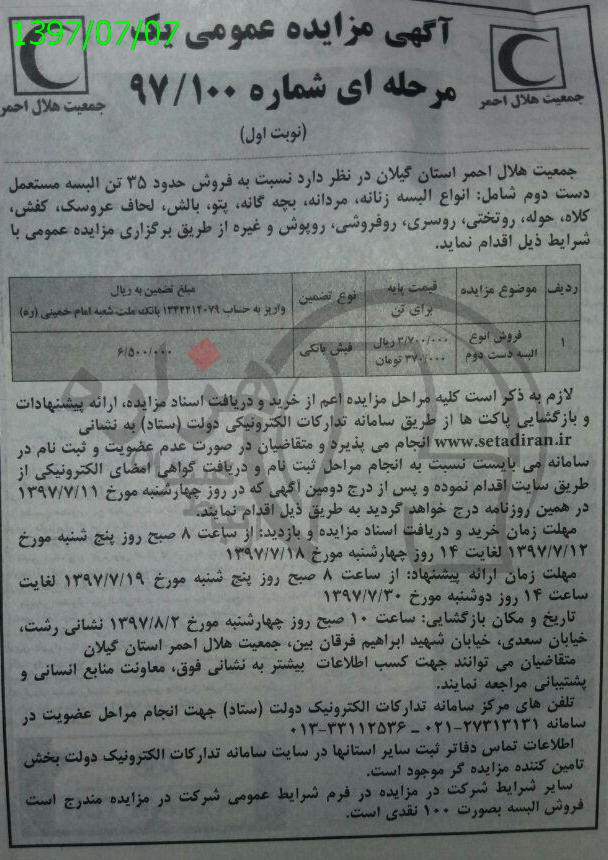 1397/07/07
آگهی مزایده عمومی یک
مرحله ای شماره ۹۷/۱۰۰
(نوبت اول)
جمعیت هلال احمر
جمعیت هلال احمر
جمعیت هلال احمر استان گیلان در نظر دارد نسبت به فروش حدود ۳۵ تن البسه مستعمل
دست دوم شامل: انواع البسه زنانه، مردانه، بچه گانه، پتو، بالش، لحاف عروسک، کفش،
کلاه، حوله، روتختی، روسری، روفروشی، روپوش و غیره از طریق برگزاری مزایده عمومی با
شرایط ذیل اقدام نماید.
ردیف موضوع مزایده قیمت پایه برای تن نوع تضمین مبلغ تضمین به ریال
واریز به حساب ۱۳۴۴۲۱۴۰۷۹ بانک ملت شعبه امام خمینی (ره)
۱ فروش انوع البسه دست دوم ۳/۷۰۰/۰۰۰ ریال ۳۷۰/۰۰۰ تومان فیش بانکی ۶/۵۰۰/۰۰۰
لازم به ذکر است کلیه مراحل مزایده اعم از خرید و دریافت اسناد مزایده، ارائه پیشنهادات
و بازگشایی پاکت ها از طریق سامانه تدارکات الکترونیکی دولت (ستاد) به نشانی
www.setadiran.ir انجام می پذیرد و متقاضیان در صورت عدم عضویت و ثبت نام در
سامانه می بایست نسبت به انجام مراحل ثبت نام و دریافت گواهی امضای الکترونیکی از
طریق سایت اقدام نموده و پس از درج دومین آگهی که در روز چهارشنبه مورخ ۱۳۹۷/۷/۱۱
در همین روزنامه درج خواهد گردید به طریق ذیل اقدام نمایند.
مهلت زمان خرید و دریافت اسناد مزایده و بازدید: از ساعت ۸ صبح روز پنج شنبه مورخ
۱۳۹۷/۷/۱۲ لغایت ۱۴ روز چهارشنبه مورخ ۱۳۹۷/۷/۱۸
مهلت زمان ارائه پیشنهاد: از ساعت ۸ صبح روز پنج شنبه مورخ ۱۳۹۷/۷/۱۹ لغایت
ساعت ۱۴ روز دوشنبه مورخ ۱۳۹۷/۷/۳۰
تاریخ و مکان بازگشایی: ساعت ۱۰ صبح روز چهارشنبه مورخ ۱۳۹۷/۸/۲ نشانی رشت،
خیابان سعدی، خیابان شهید ابراهیم فرقان بین، جمعیت هلال احمر استان گیلان
متقاضیان می توانند جهت کسب اطلاعات بیشتر به نشانی فوق، معاونت منابع انسانی و
پشتیبانی مراجعه نمایند.
تلفن های مرکز سامانه تدارکات الکترونیک دولت (ستاد) جهت انجام مراحل عضویت در
سامانه ۲۷۳۱۳۱۳۱-۰۲۱ ـ ۳۳۱۱۲۵۳۶-۰۱۳
اطلاعات تماس دفاتر ثبت سایر استانها در سایت سامانه تدارکات الکترونیک دولت بخش
تامین کننده مزایده گر موجود است.
سایر شرایط شرکت در مزایده در فرم شرایط عمومی شرکت در مزایده مندرج است
فروش البسه بصورت ۱۰۰ نقدی است.
هزاره